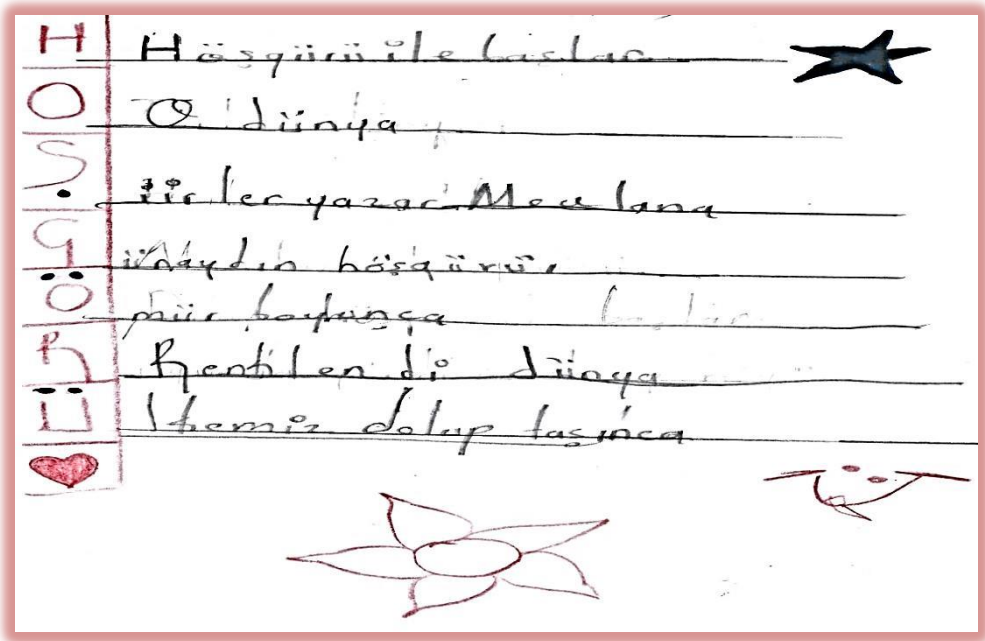 H Höşgürü ile başlar
O O dünya
Ş iirler yazar Mevlana
G ünaydın höşgürür
Ö mür boyunca
R Renklendi dünya
Ü lkemiz dolup taşınca